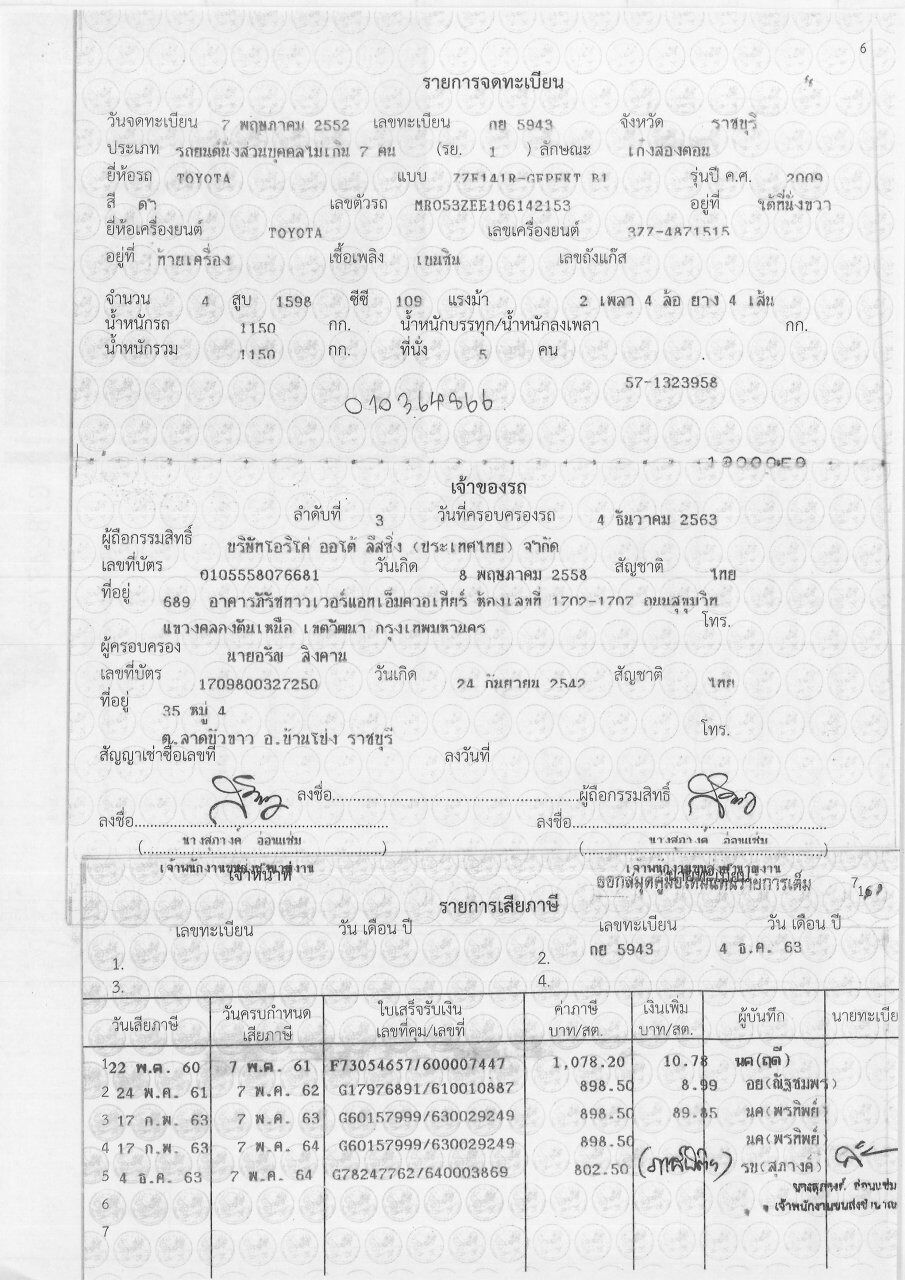 6
รายการจดทะเบียน
วันจดทะเบียน 7 พฤษภาคม 2552 เลขทะเบียน กย 5943 จังหวัด ราชบุรี
ประเภท รถยนต์นั่งส่วนบุคคลไม่เกิน 7 คน (รย. 1 ) ลักษณะ เก๋งสองตอน
ยี่ห้อรถ TOYOTA แบบ ZZE141R-GEPEKT R1 รุ่นปี ค.ศ. 2009
สี ดำ เลขตัวรถ MR053ZEE106142153 อยู่ที่ ใต้ที่นั่งขวา
ยี่ห้อเครื่องยนต์ TOYOTA เลขเครื่องยนต์ 3ZZ-4871515
อยู่ที่ ท้ายเครื่อง เชื้อเพลิง เบนซิน เลขถังแก๊ส
จำนวน 4 สูบ 1598 ซีซี 109 แรงม้า 2 เพลา 4 ล้อ ยาง 4 เส้น
น้ำหนักรถ 1150 กก. น้ำหนักบรรทุก/น้ำหนักลงเพลา กก.
น้ำหนักรวม 1150 กก. ที่นั่ง 5 คน
57-1323958
010364866
เจ้าของรถ
ลำดับที่ 3 วันที่ครอบครองรถ 4 ธันวาคม 2563
ผู้ถือกรรมสิทธิ์ บริษัทโอริโค่ ออโต้ ลีสซิ่ง (ประเทศไทย) จำกัด
เลขที่บัตร 0105558076681 วันเกิด 8 พฤษภาคม 2558 สัญชาติ ไทย
ที่อยู่ 689 อาคารภิรัชทาวเวอร์แอทเอ็มควอเทียร์ ห้องเลขที่ 1702-1707 ถนนสุขุมวิท
แขวงคลองตันเหนือ เขตวัฒนา กรุงเทพมหานคร โทร.
ผู้ครอบครอง นายอรัญ สิงคาน
เลขที่บัตร 1709800327250 วันเกิด 24 กันยายน 2542 สัญชาติ ไทย
ที่อยู่ 35 หมู่ 4
ต.ลาดบัวขาว อ.บ้านโป่ง ราชบุรี โทร.
สัญญาเช่าซื้อเลขที่ ลงวันที่
ลงชื่อ........................................ผู้ถือกรรมสิทธิ์
ลงชื่อ........................................ ลงชื่อ........................................
(นางสุภางค์ อ่อนแช่ม) (นางสุภางค์ อ่อนแช่ม)
เจ้าพนักงานขนส่งชำนาญงาน เจ้าพนักงานขนส่งชำนาญงาน
เจ้าหน้าที่ นายทะเบียน
ออกสมุดคู่มือใหม่แทนรายการเต็ม 7
รายการเสียภาษี
เลขทะเบียน วัน เดือน ปี เลขทะเบียน วัน เดือน ปี
1. 2. กย 5943 4 ธ.ค. 63
3. 4.
วันเสียภาษี วันครบกำหนดเสียภาษี ใบเสร็จรับเงิน เลขที่คุม/เลขที่ ค่าภาษี บาท/สต. เงินเพิ่ม บาท/สต. ผู้บันทึก นายทะเบีย
1 22 พ.ค. 60 7 พ.ค. 61 F73054657/600007447 1,078.20 10.78 นค(ฤดี)
2 24 พ.ค. 61 7 พ.ค. 62 G17976891/610010887 898.50 8.99 อย(ณัฐชมพร)
3 17 ก.พ. 63 7 พ.ค. 63 G60157999/630029249 898.50 89.85 นค(พรทิพย์)
4 17 ก.พ. 63 7 พ.ค. 64 G60157999/630029249 898.50 นค(พรทิพย์)
5 4 ธ.ค. 63 7 พ.ค. 64 G78247762/640003869 802.50 รบ(สุภางค์)
นางสุภางค์ อ่อนแช่ม
6 เจ้าพนักงานขนส่งชำนาญ
7